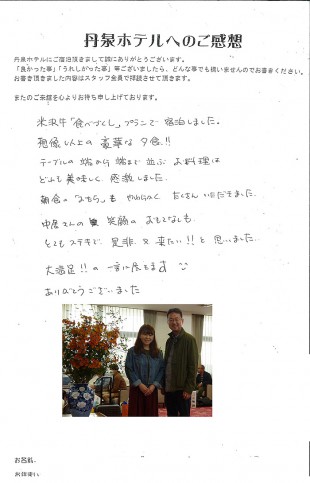 丹泉ホテルへのご感想
丹泉ホテルにご宿泊頂きまして誠にありがとうございます。
「良かった事」「うれしかった事」等ございましたら、どんな事でも構いませんのでお書きください。
お書き頂きました内容はスタッフ全員で拝読させて頂きます。
またのご来館を心よりお待ち申し上げております。
米沢牛「食べづくし」プランで宿泊しました。
想像以上の豪華な夕食!!
テーブルの端から端まで並ぶお料理は
どれも美味しく、感激しました。
朝食の「おもち」もやわらかく たくさんいただきました。
中居さんの 笑顔のおもてなしも
とてもステキで、是非又来たい!!と思いました。
大満足!!の一言に尽きます
ありがとうございました
お名前